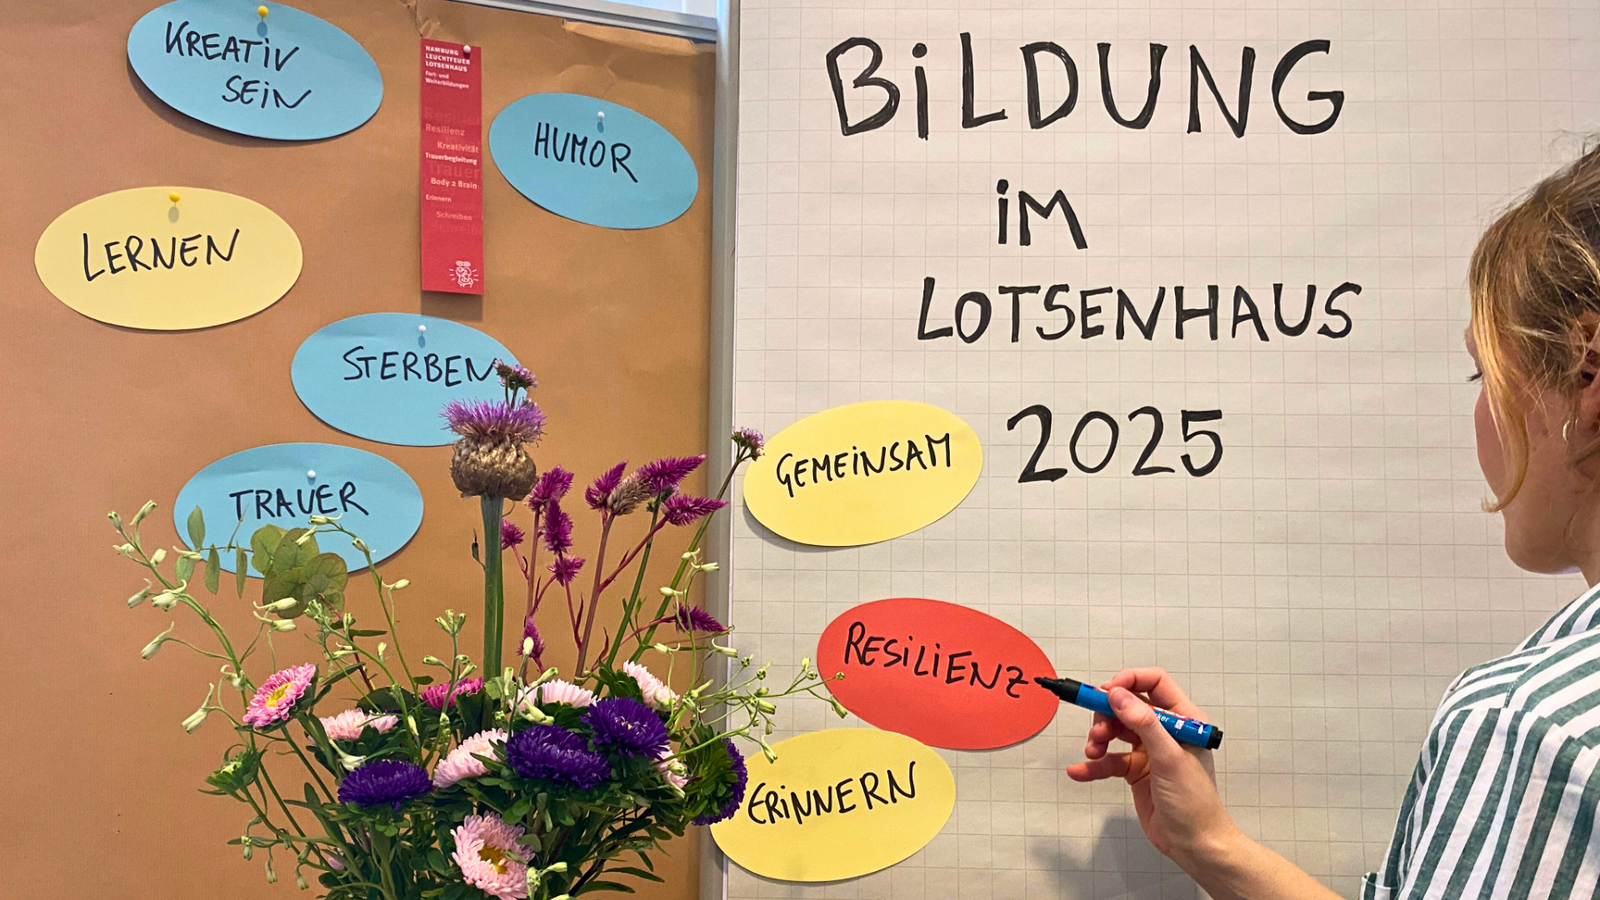 KREATIV
SEIN
HAMBURG
LEUCHTFEUER
LOTSENHAUS
Fort- und
Weiterbildungen
Resilienz
Kreativität
Trauerbegleitung
Trauer
Body 2 Brain
Erinnern
Schreiben
HUMOR
LERNEN
STERBEN
TRAUER
BILDUNG
IM
LOTSENHAUS
2025
GEMEINSAM
RESILIENZ
ERINNERN